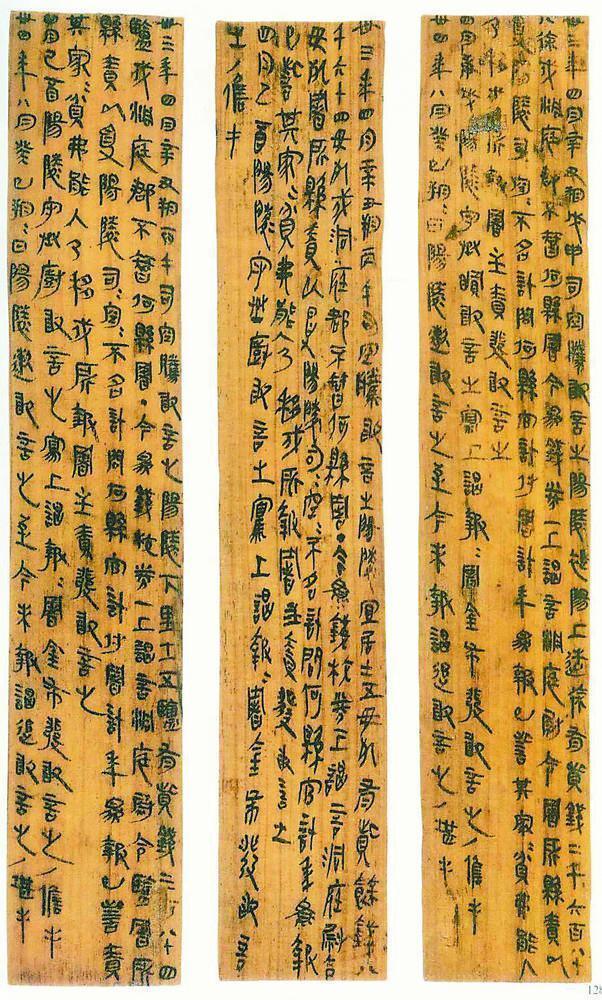 卅三年四月辛丑朔戊申司空騰敢言之陽陵褆陽上造徐有貲錢二千六百八十
八徐戍洞庭郡不智何縣署今為錢券一上謁言洞庭尉令署所縣責以
受陽陵司=空=不名計問何縣官計付署計年為報已訾其家=貧弗能入
乃移戍所報署主責發敢言之
四月庚戌陽陵守丞瞫敢言之寫上謁報=署金布發敢言之/儋手
卅四年八月癸巳朔=日陽陵遬敢言之至今未報謁追敢言之/堪手
卅三年四月辛丑朔丙午司空騰敢言之陽陵宜居士五毋死有貲餘錢八
千六十四毋死戍洞庭郡不智何縣署·今為錢校券一上謁言洞庭尉令
毋死署所縣責以受陽陵司=空=不名計問何縣官計年為報
已訾其家=貧弗能入乃移戍所報署主責發敢言之
四月己酉陽陵守丞廚敢言之寫上謁報=署金布發敢言
之/儋手
卅三年四月辛丑朔丙午司空騰敢言之陽陵下里士五鹽有貲錢三百八十四
鹽戍洞庭郡不智何縣署·今為錢校券一上謁言洞庭尉令鹽署所
縣責以受陽陵司=空=不名計問何縣官計付署計年為報已訾責
其家=貧弗能入乃移戍所報署主責發敢言之
四月己酉陽陵守丞廚敢言之寫上謁報=署金布發敢言之/儋手
卅四年八月癸巳朔=日陽陵遬敢言之至今未報謁追敢言之/堪手